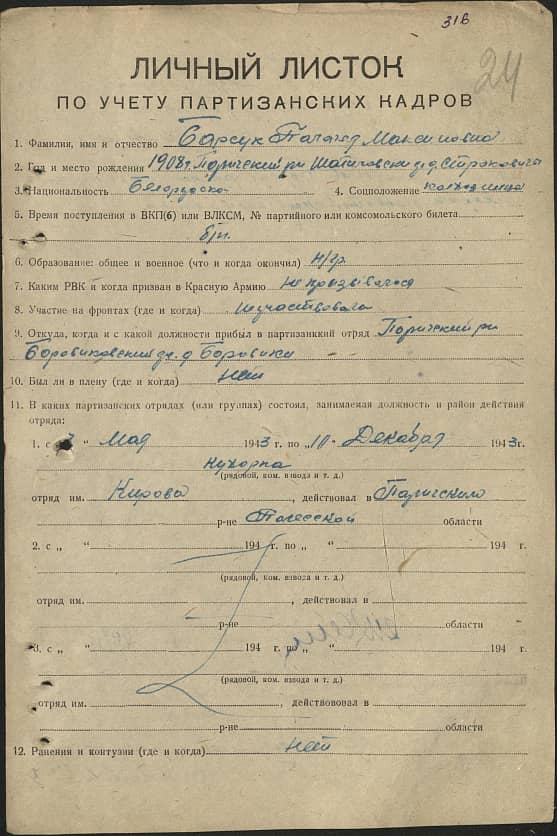 316
24
ЛИЧНЫЙ ЛИСТОК
ПО УЧЕТУ ПАРТИЗАНСКИХ КАДРОВ
1. Фамилия, имя и отчество Барсук Максимовна
2. Год и место рождения 1908 г. Паричский р-н
3. Национальность Белорусска 4. Соцположение колхозница
5. Время поступления в ВКП(б) или ВЛКСМ, № партийного или комсомольского билета
б/п.
6. Образование: общее и военное (что и когда окончил) н/гр.
7. Каким РВК и когда призван в Красную Армию
8. Участие на фронтах (где и когда)
9. Откуда, когда и с какой должности прибыл в партизанкий отряд Паричский р-н
Боровиковский д. Боровики
10. Был ли в плену (где и когда) нет
11. В каких партизанских отрядах (или группах) состоял, занимаемая должность и район действия
отряда:
1. с „ “ Мая 1943 г. по „10“ Декабря 1943 г.
(рядовой, ком. взвода и т. д.)
отряд им. Кирова, действовал в Паричском
р-не Полесской области
2. с „ “ 194 г. по „ “ 194 г.
(рядовой, ком. взвода и т. д.)
отряд им. , действовал в
р-не области
3. с „ “ 194 г. по „ “ 194 г.
(рядовой, ком. взвода и т. д.)
отряд им. , действововал в
р-не области
12. Ранения и контузии (где и когда) нет